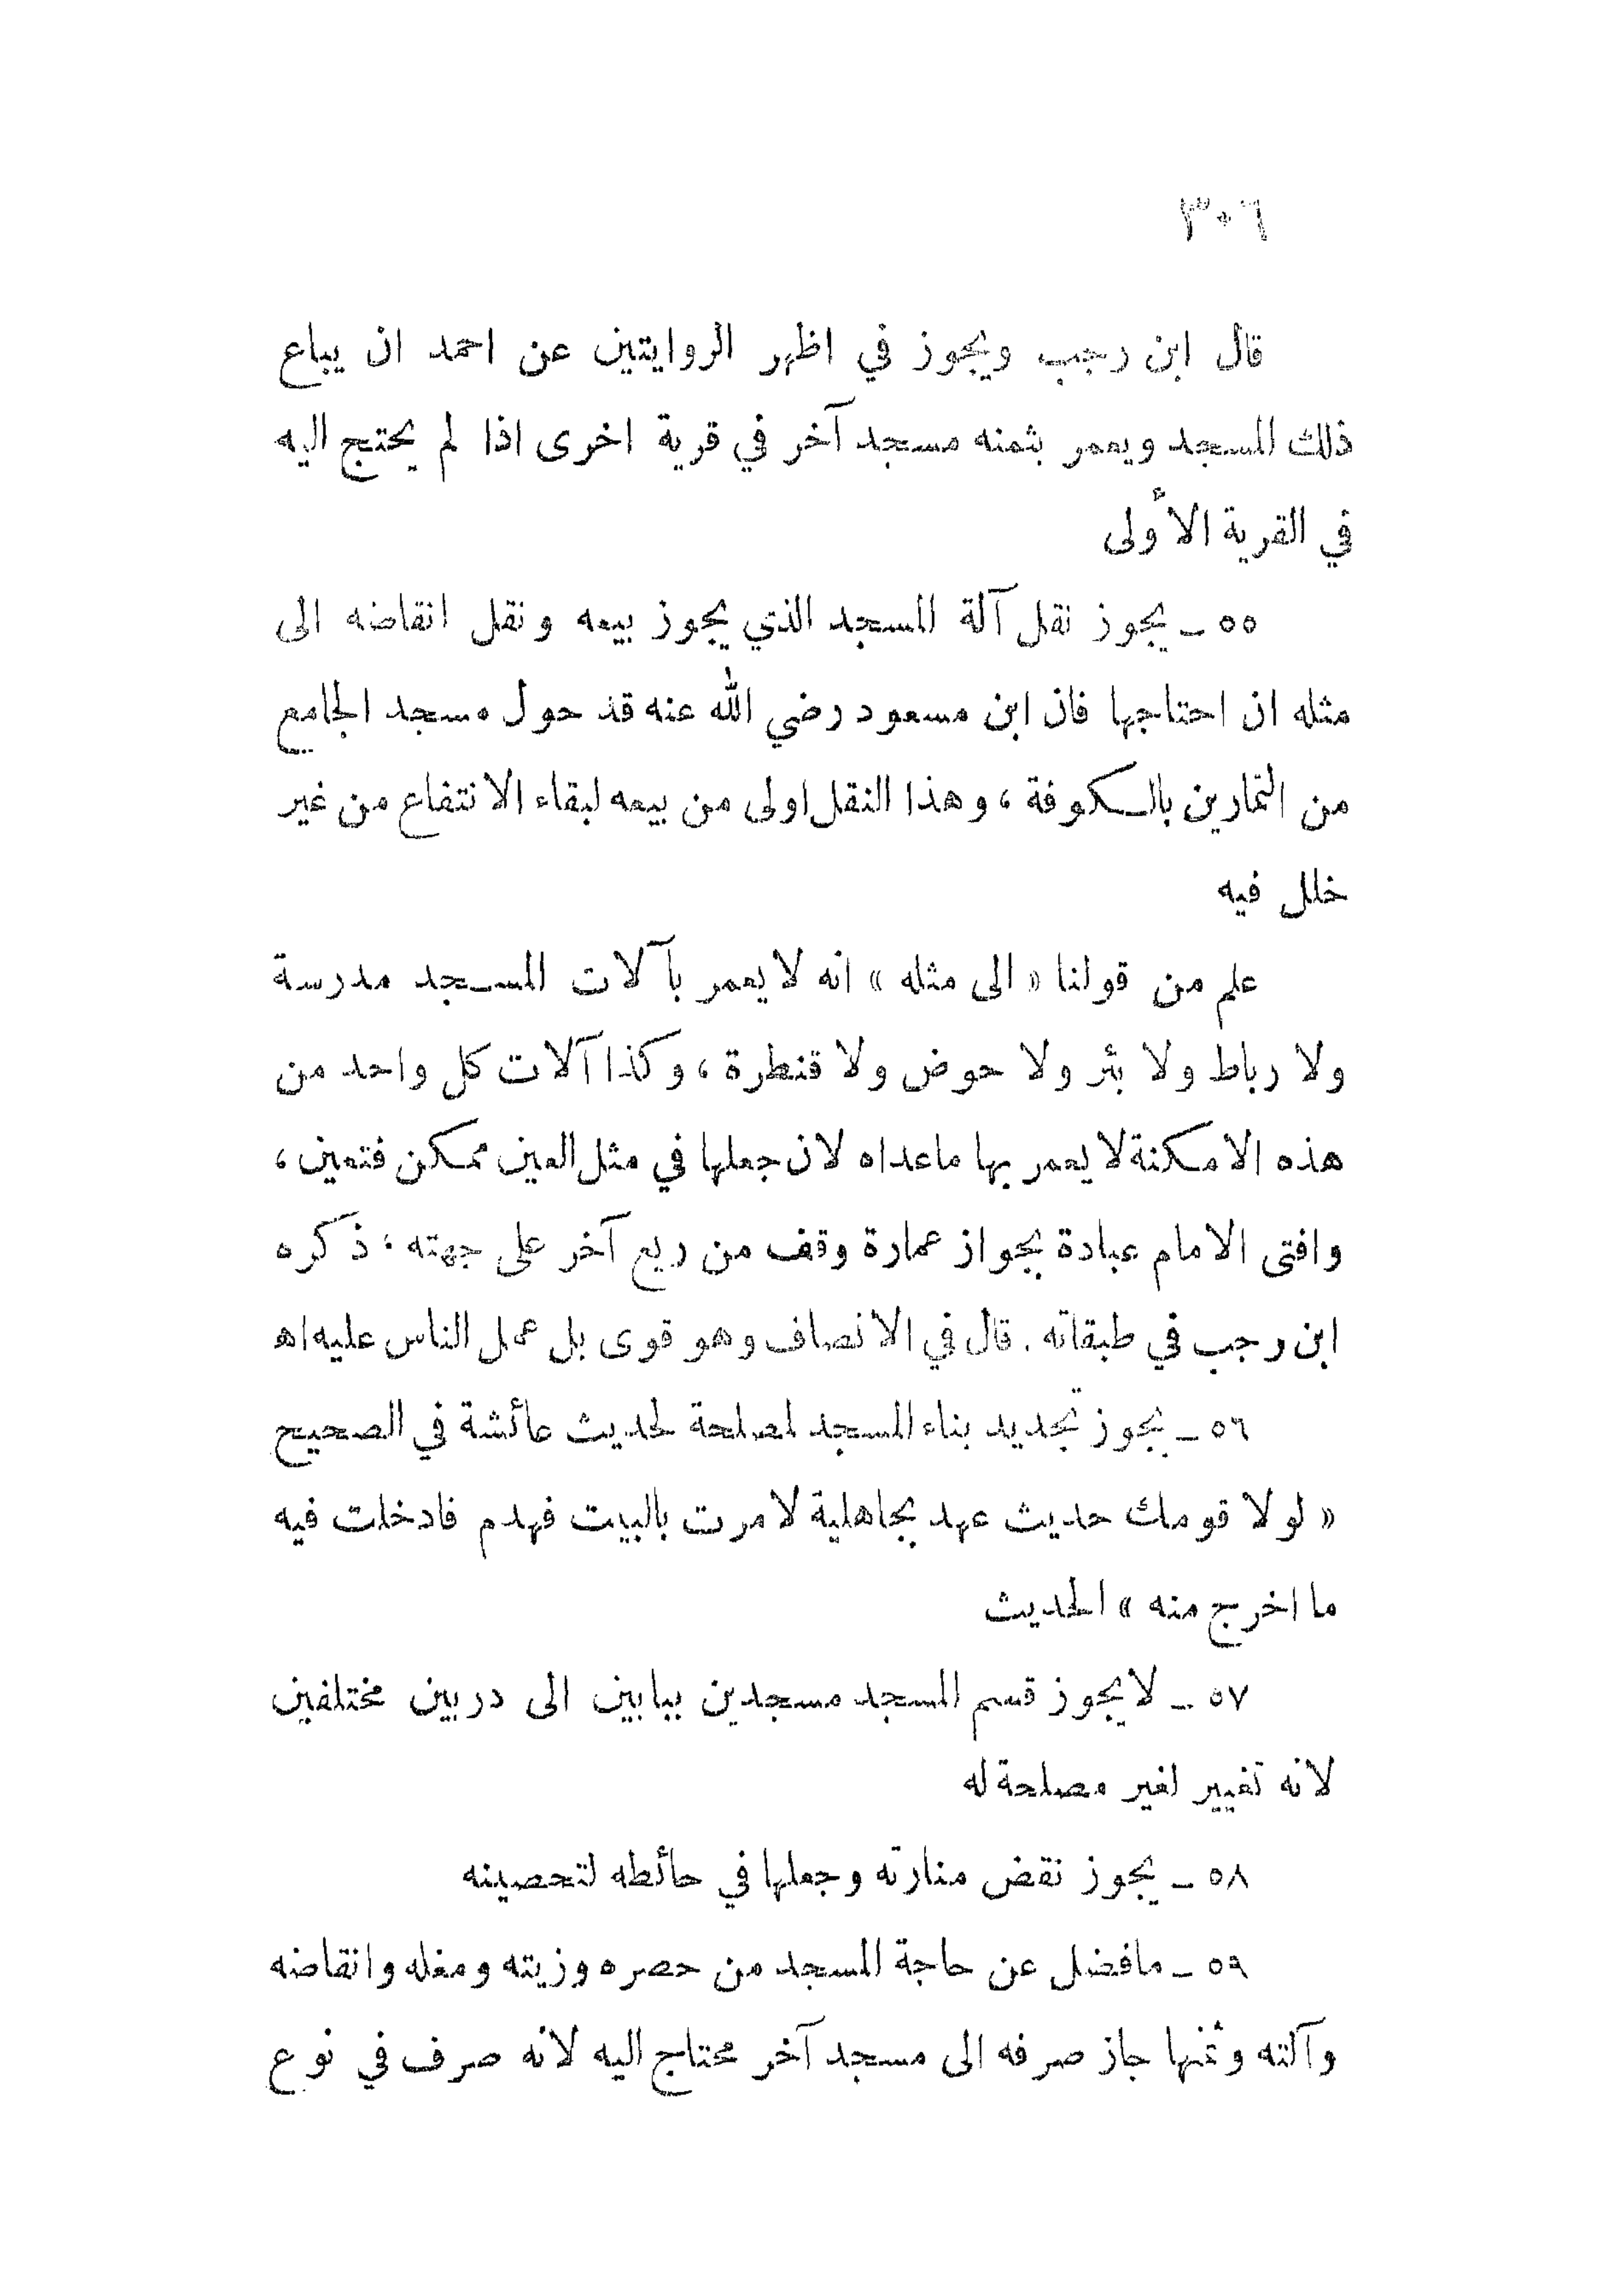 ٣٠٦
قال ابن رجب ويجوز في اظهر الروايتين عن احمد ان يباع
ذلك المسجد ويعمر بثمنه مسجد آخر في قرية اخرى اذا لم يحتج اليه
في القرية الأولى
٥٥ ـ يجوز نقل آلة المسجد الذي يجوز بيعه ونقل انقاضه الى
مثله ان احتاجها فان ابن مسعود رضي الله عنه قد حول مسجد الجامع
من التمارين بالكوفة ، وهذا النقل اولى من بيعه لبقاء الانتفاع من غير
خلل فيه
علم من قولنا « الى مثله » انه لا يعمر بآلات المسجد مدرسة
ولا رباط ولا بئر ولا حوض ولا قنطرة ، وكذا آلات كل واحد من
هذه الامكنة لا يعمر بها ماعداه لان جعلها في مثل العين ممكن فتعين ،
وافتى الامام عبادة بجواز عمارة وقف من ريع آخر على جهته ؛ ذكره
ابن رجب في طبقاته . قال في الانصاف وهو قوى بل عمل الناس عليه اه
٥٦ ـ يجوز تجديد بناء المسجد لمصلحة لحديث عائشة في الصحيح
« لولا قومك حديث عهد بجاهلية لامرت بالبيت فهدم فادخلت فيه
ما اخرج منه » الحديث
٥٧ ـ لا يجوز قسم المسجد مسجدين ببابين الى دربين مختلفين
لانه تغيير لغير مصلحة له
٥٨ ـ يجوز نقض منارته وجعلها في حائطه لتحصينه
٥٩ ـ مافضل عن حاجة المسجد من حصره وزيته ومغله وانقاضه
وآلته وثمنها جاز صرفه الى مسجد آخر محتاج اليه لانه صرف في نوع